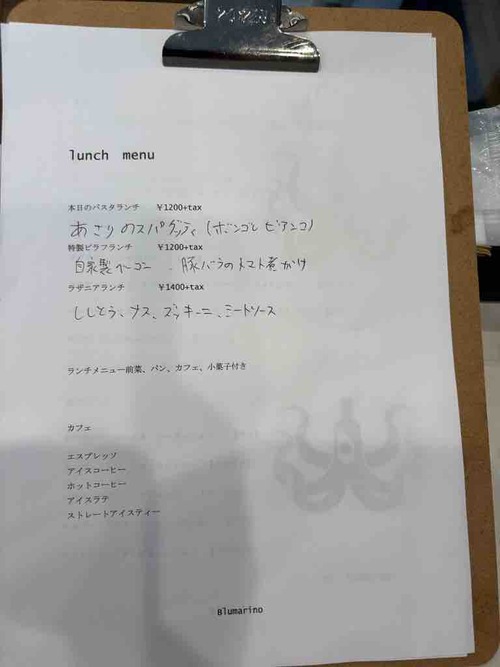 lunch menu
本日のパスタランチ ¥1200+tax
あさりのスパゲッティ(ボンゴレ ビアンコ)
特製ピラフランチ ¥1200+tax
自家製ベーコン、豚バラのトマト煮かけ
ラザニアランチ ¥1400+tax
ししとう、ナス、ズッキーニ、ミートソース
ランチメニュー前菜、パン、カフェ、小菓子付き
カフェ
エスプレッソ
アイスコーヒー
ホットコーヒー
アイスラテ
ストレートアイスティー
Blumarino